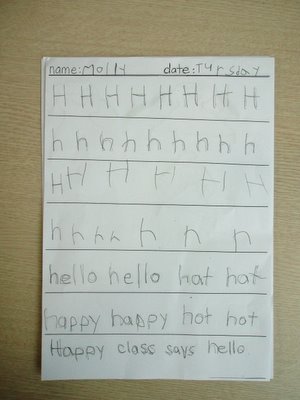 name: Molly date: Tursday
H H H H H H H H
h h h h h h h h h
H H H H H H H
h h h h h n n
hello hello hat hat
happy happy hot hot
Happy class says hello